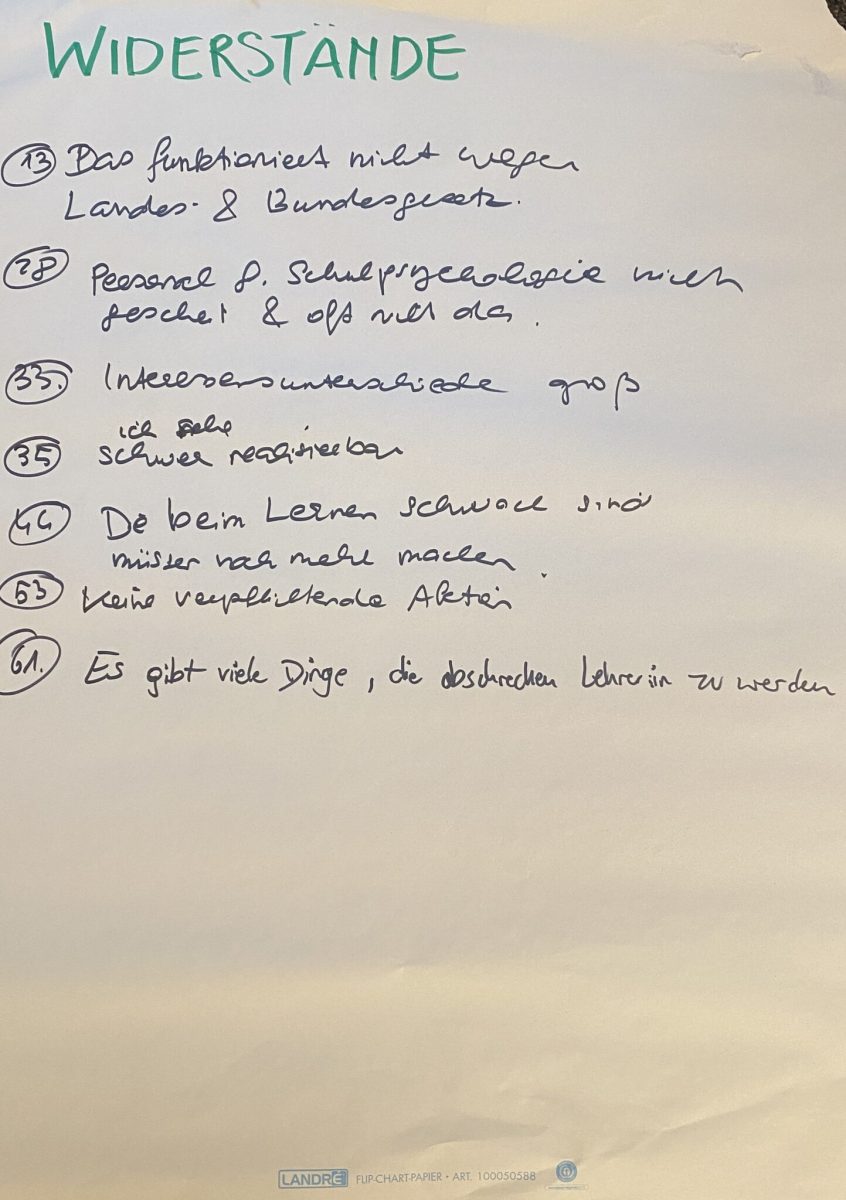 WIDERSTÄNDE
13 Das funktioniert nicht wegen
Landes- & Bundesgesetz.
28 Personal f. Schulpsychologie nicht
& oft nicht da.
33. Interessensunterschiede groß
ich sehe
35 schwer realisierbar
44 De beim Lernen schwach sind
müssen noch mehr machen.
53 Keine verpflichtende
61. Es gibt viele Dinge, die abschrecken Lehrer:in zu werden
LANDRÉ FLIP-CHART-PAPIER • ART. 100050588